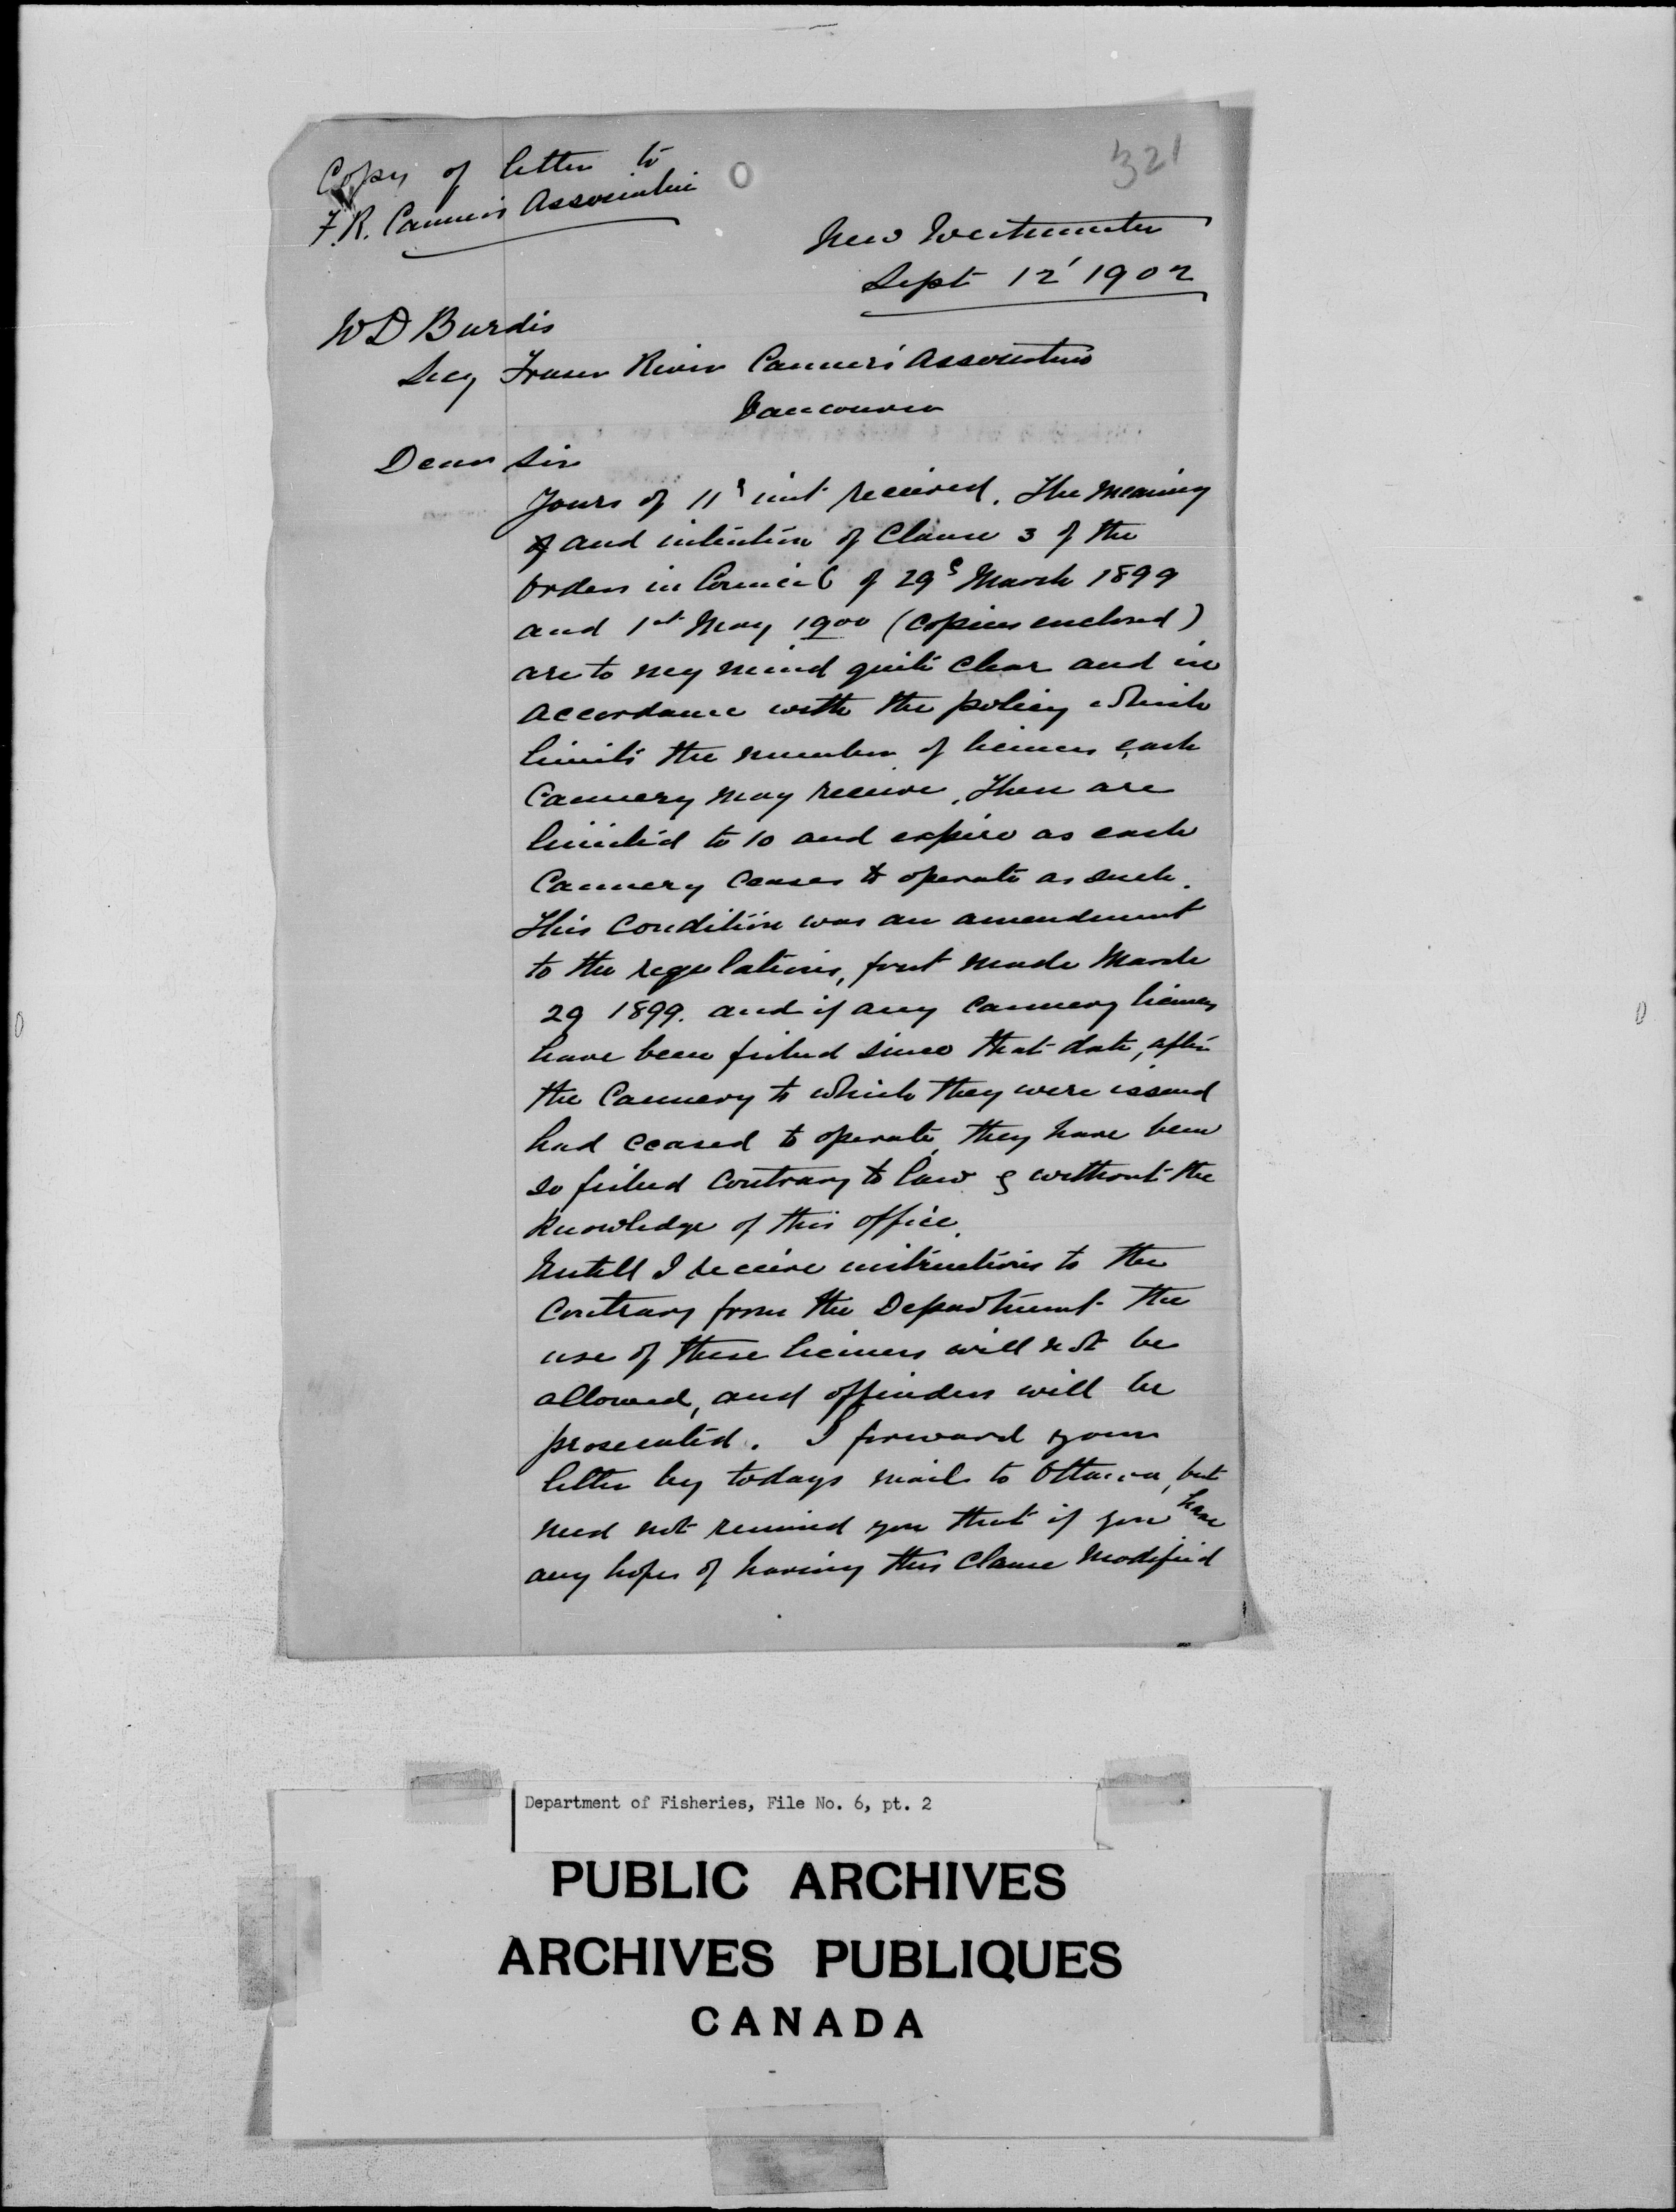 321
Copy of letter to
F. R. Canners Association
New Westminster
Sept 12' 1902
W D Burdis
Secy Fraser River Canners' Association
Vancouver
Dear Sir
Yours of 11th inst received. The meaning
and intention of Clause 3 of the
Orders in Council of 29th March 1899
and 1st May 1900 (copies enclosed)
are to my mind quite clear and in
accordance with the policy which
limits the number of licenses each
Cannery may receive. These are
limited to 10 and expire as each
Cannery ceases to operate as such.
This condition was an amendment
to the regulations, first made March
29 1899. and if any cannery licenses
have been fished since that date, after
the Cannery to which they were issued
had ceased to operate, they have been
so fished contrary to law & without the
knowledge of this office.
Untill I receive instructions to the
contrary from the Department the
use of these licenses will not be
allowed, and offenders will be
prosecuted. I forward your
letter by todays mail to Ottawa, but
need not remind you that if you have
any hopes of having this clause modified
Department of Fisheries, File No. 6, pt. 2
PUBLIC ARCHIVES
ARCHIVES PUBLIQUES
CANADA